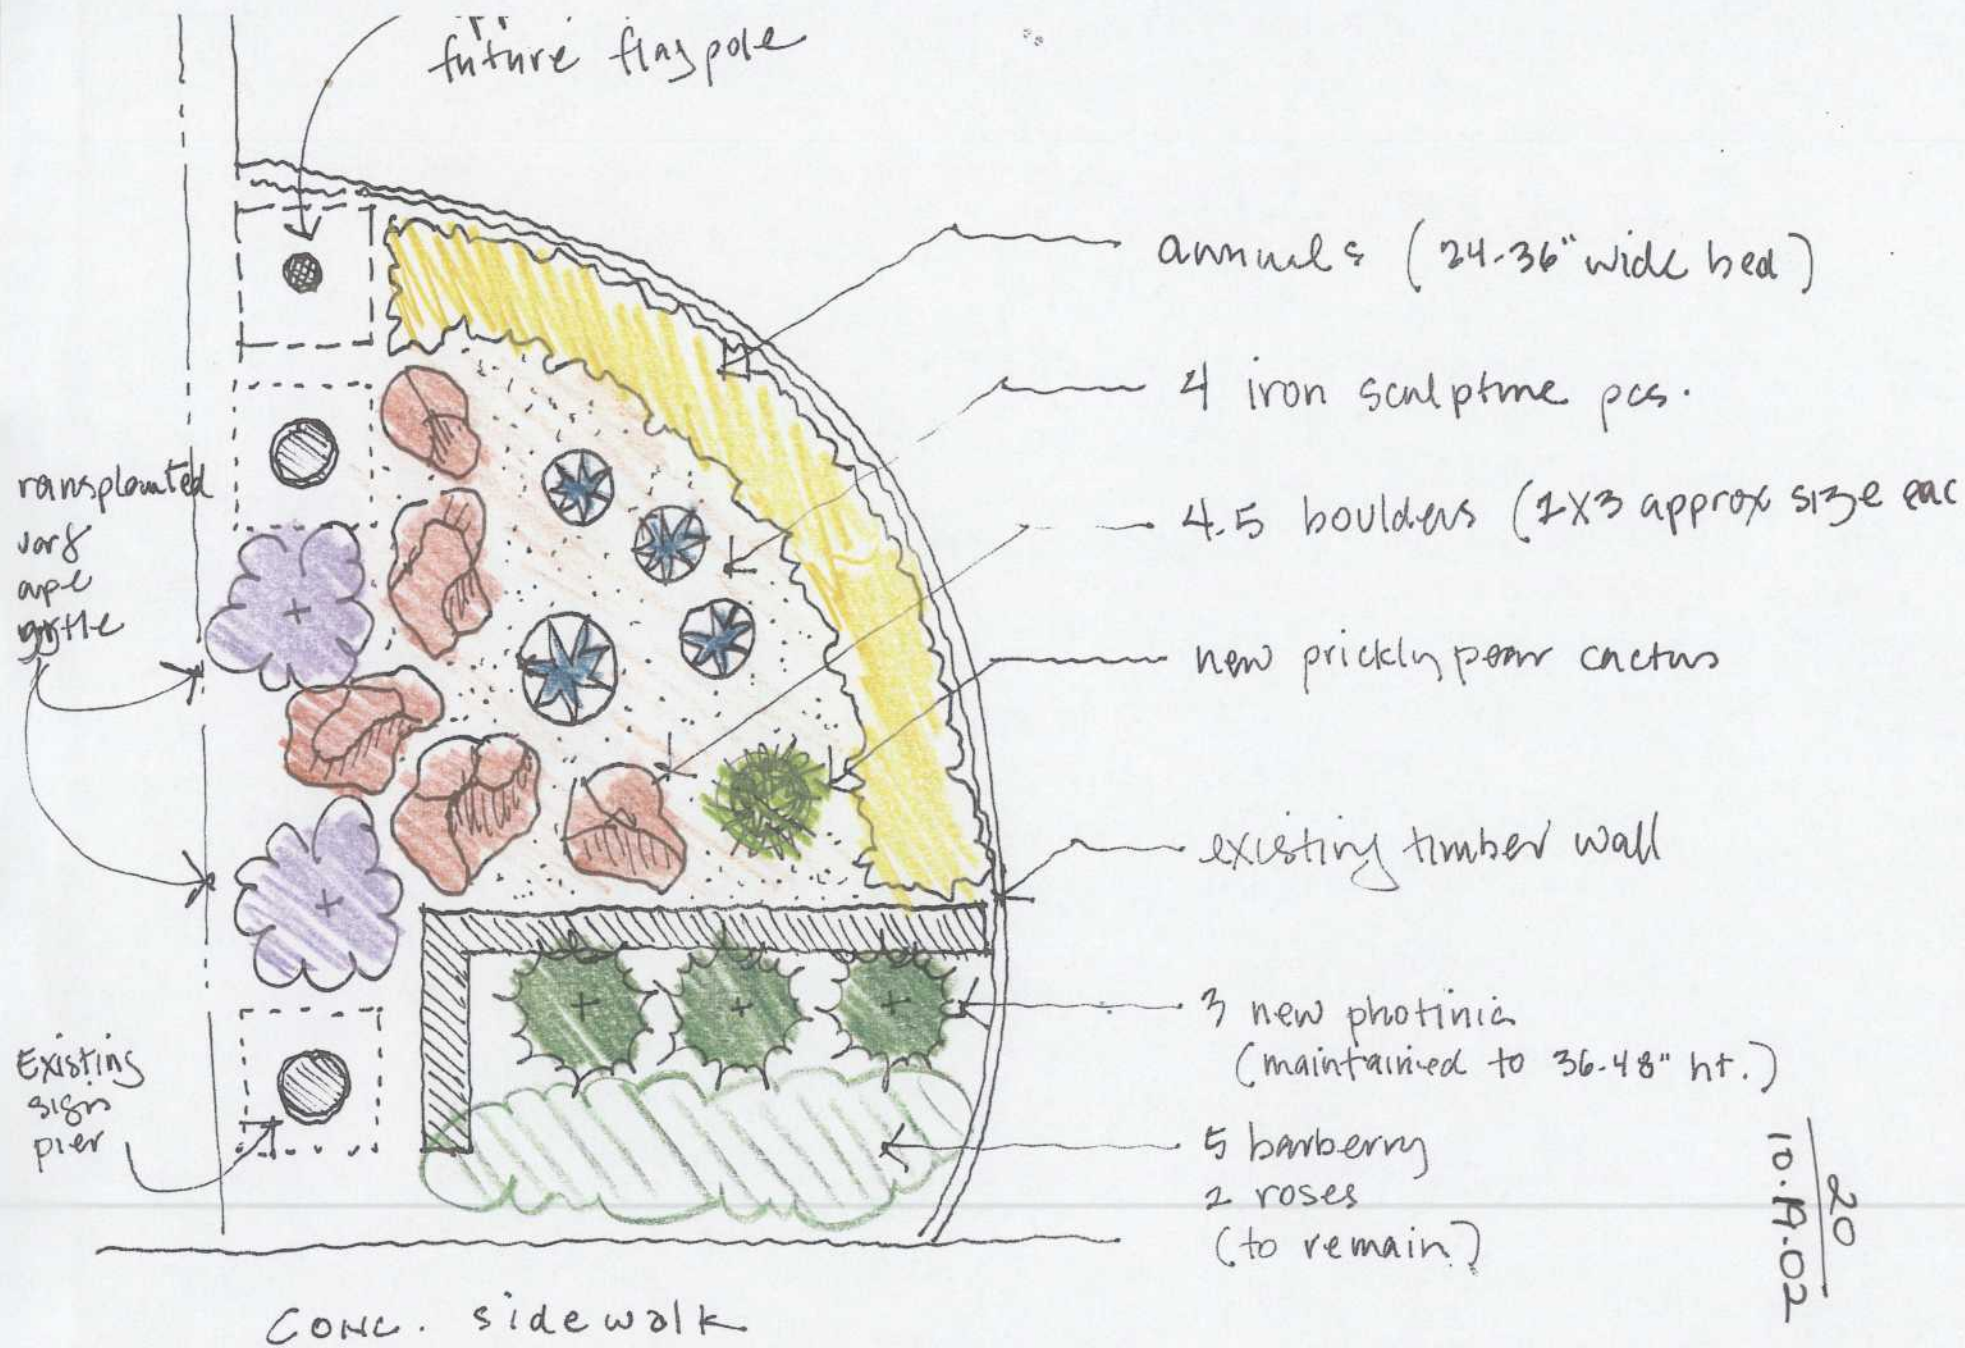 future flagpole
annuals (24-36" wide bed)
4 iron sculpture pcs.
4.5 boulders (2x3 approx size eac
new prickly pear cactus
existing timber wall
3 new photinia
(maintained to 36-48" ht.)
5 barberry
2 roses
(to remain)
ransplanted
warf
ape
yrtle
Existing
sign
pier
conc. sidewalk
20
10.19.02